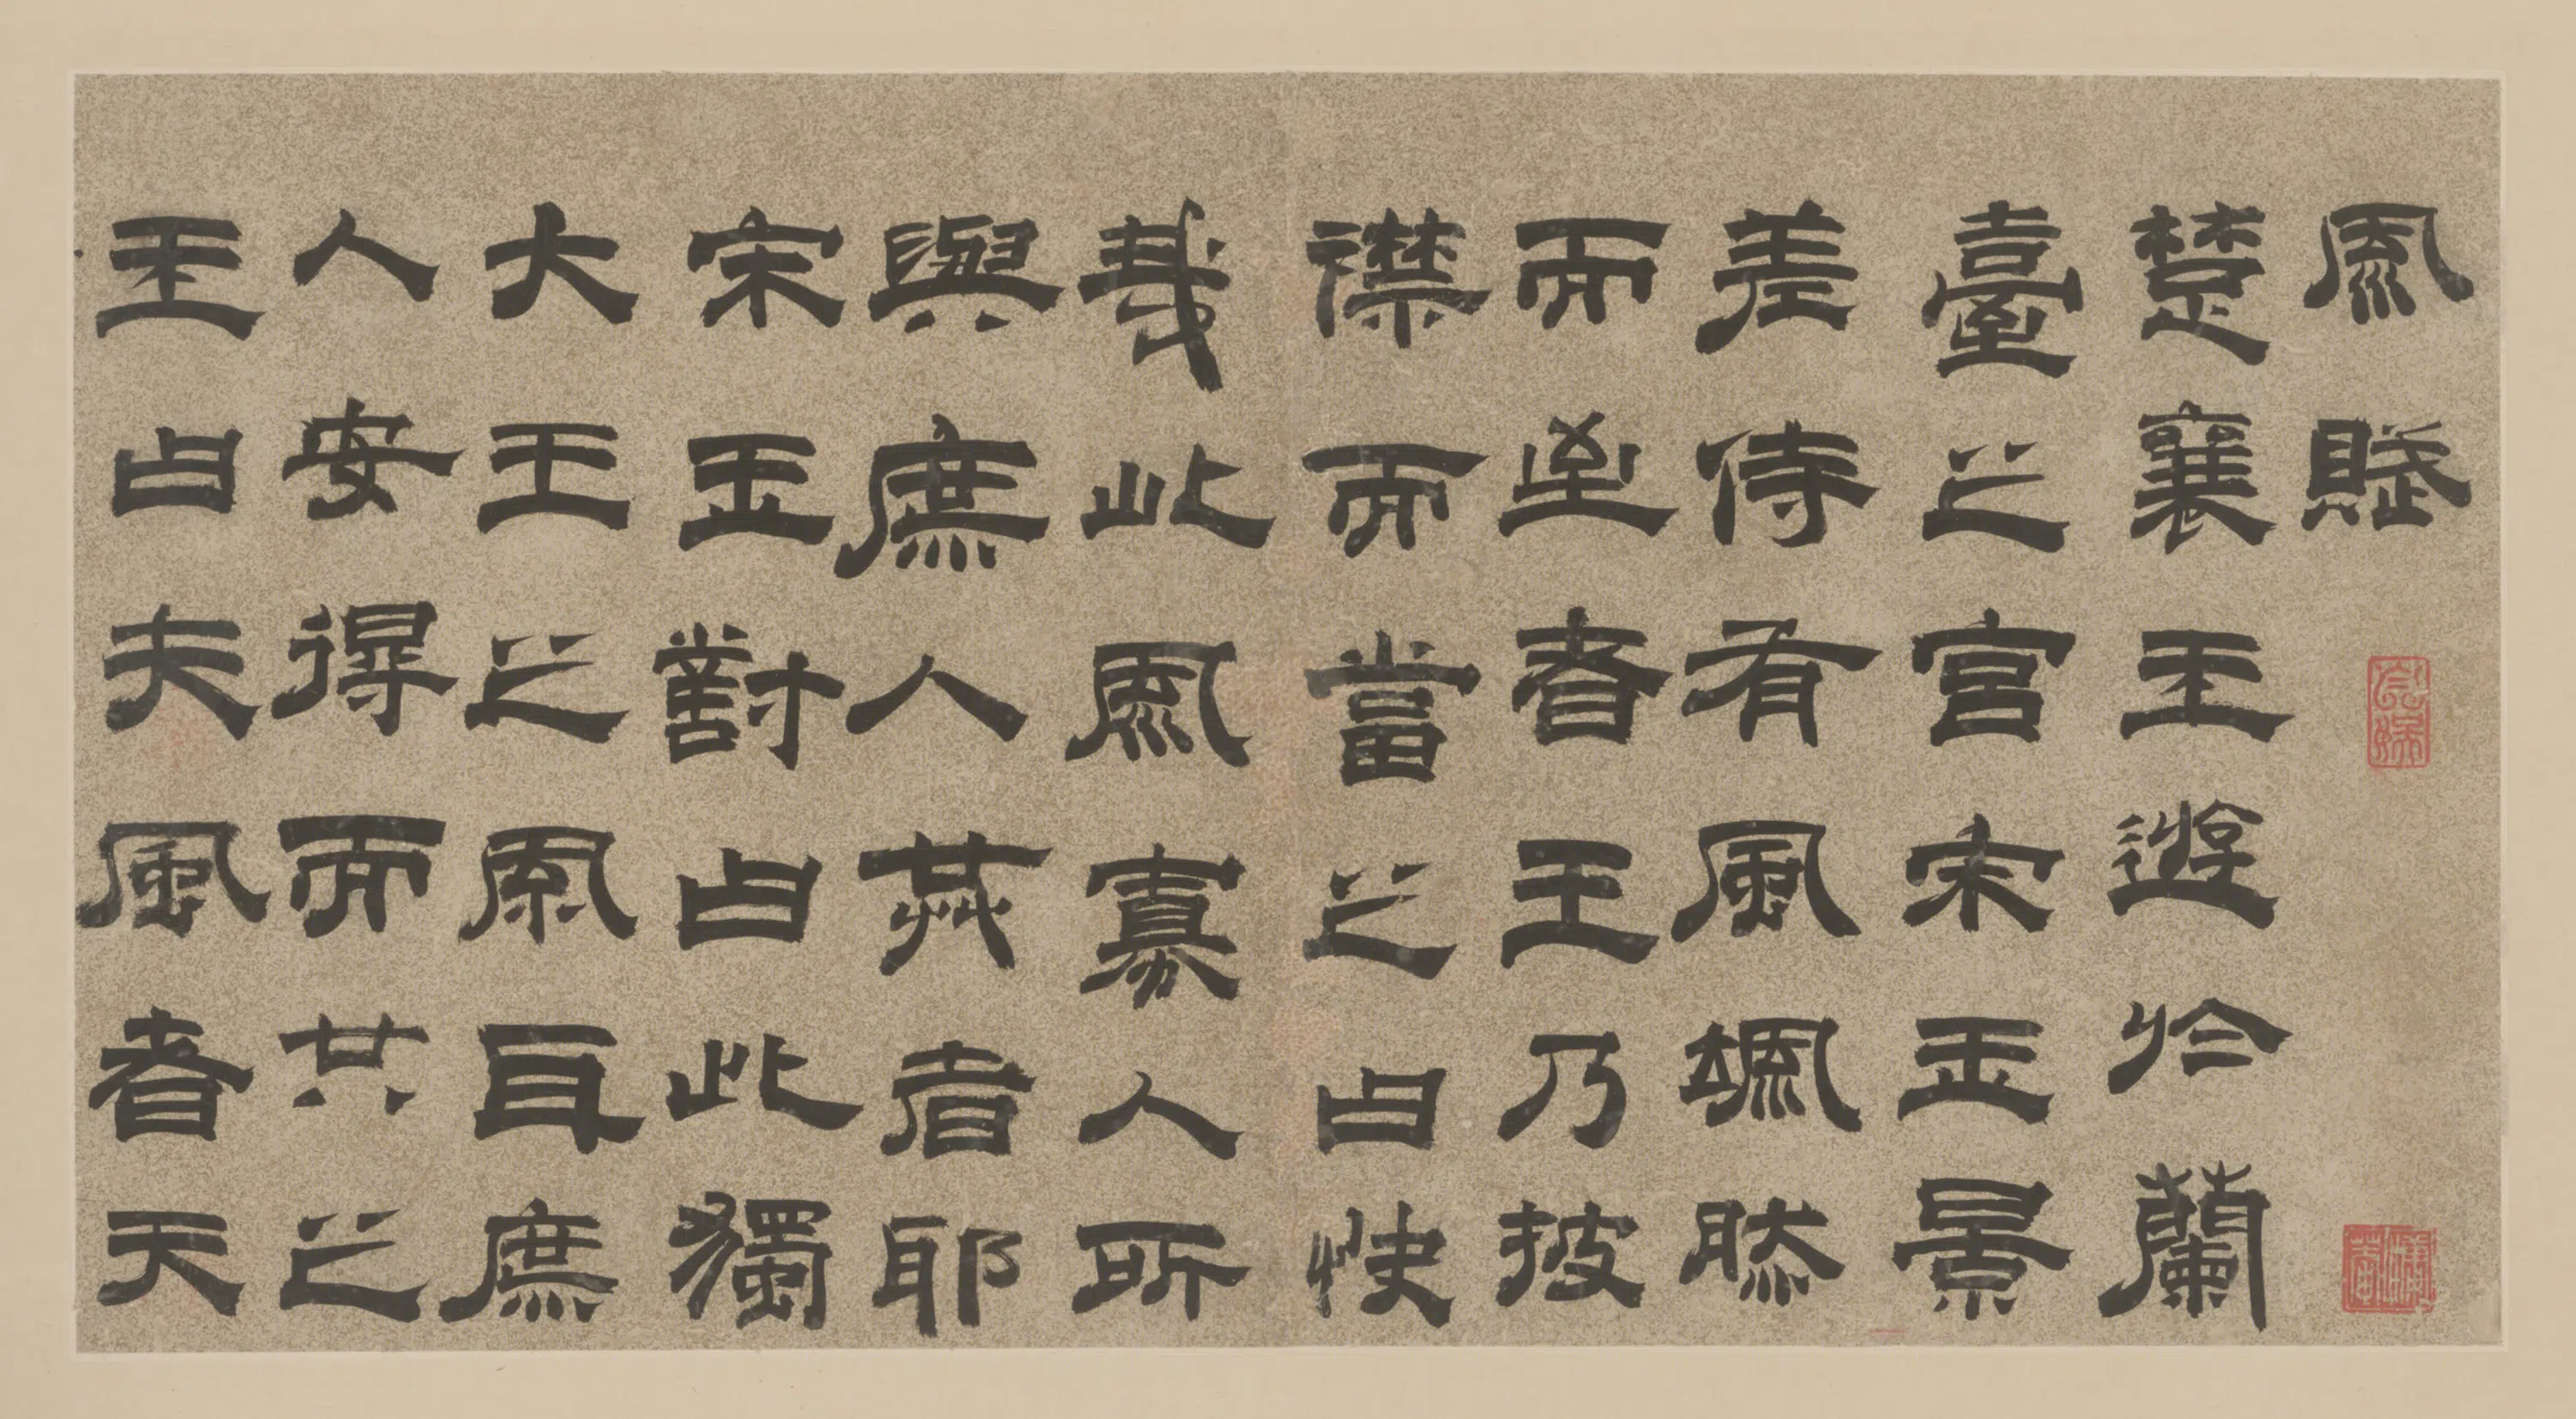 風賦
楚襄王遊於蘭
臺之宮宋玉景
差侍有風颯然
而至者王乃披
襟而當之曰快
哉此風寡人所
與庶人共者耶
宋玉對曰此獨
大王之風耳庶
人安得而共之
王曰夫風者天